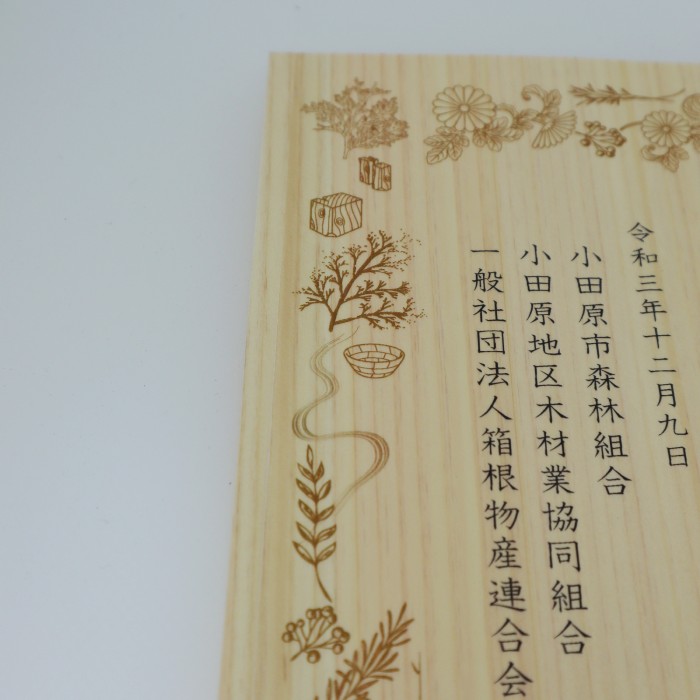 令和三年十二月九日
小田原市森林組合
小田原地区木材業協同組合
一般社団法人箱根物産連合会